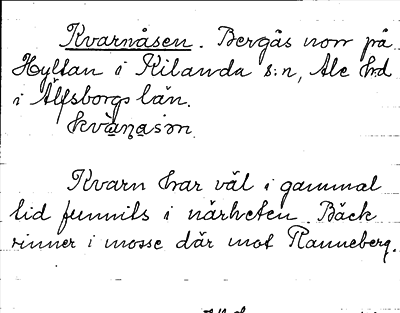 Kvarnåsen. Bergås norr på
Hyltan i Kilanda s:n, Ale h:d
i Älfsborgs län.
kvànasm
Kvarn har väl i gammal
tid funnits i närheten. Bäck
rinner i mosse där mot Ranneberg.